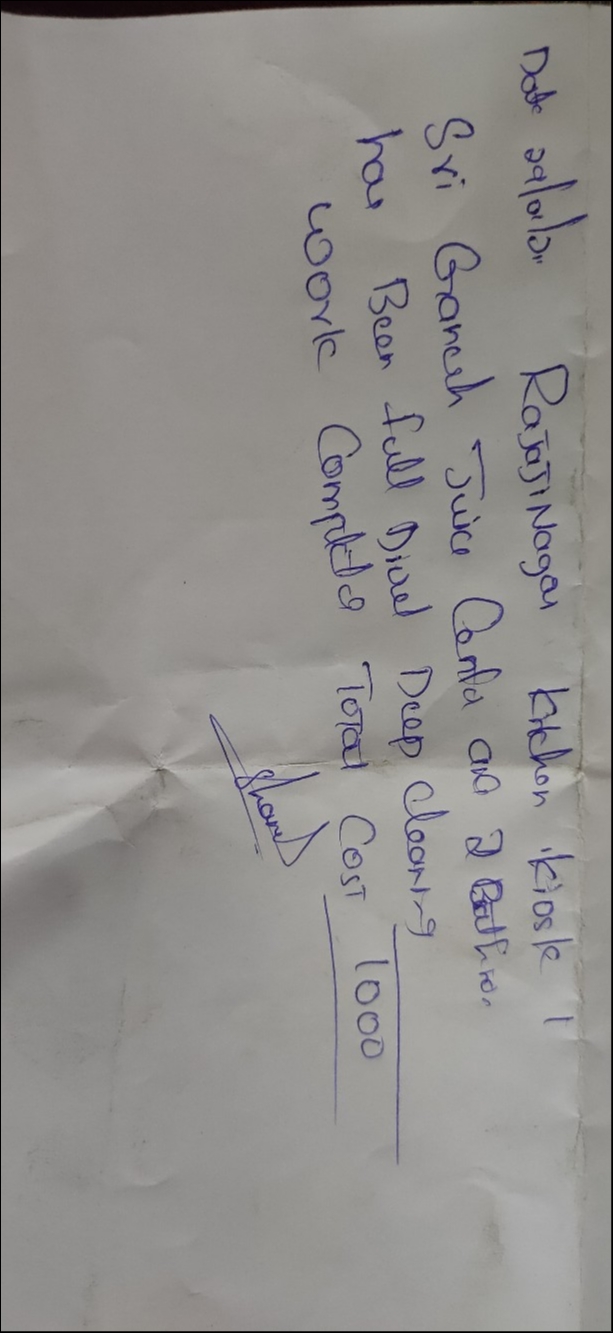 Date Rajaji Nagar Kitchen Kiosk 1
Sri Ganesh Juice Center and 2 Bathroo
has Been full Drinel Deep cleaning
work Completed Total Cost 1000